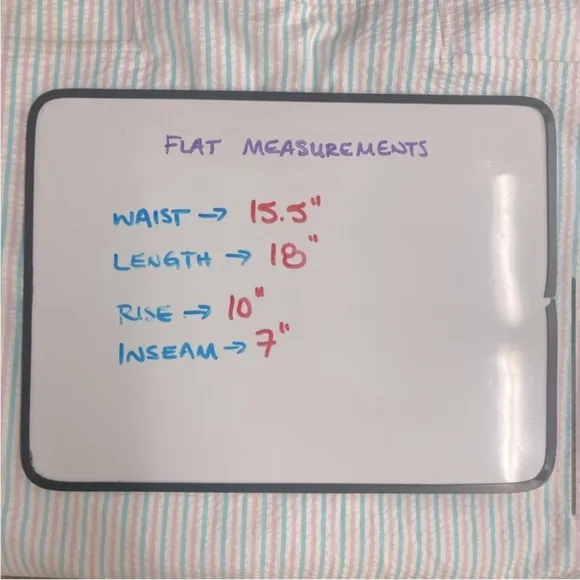 FLAT MEASUREMENTS
WAIST → 15.5"
LENGTH → 18"
RISE → 10"
INSEAM → 7"